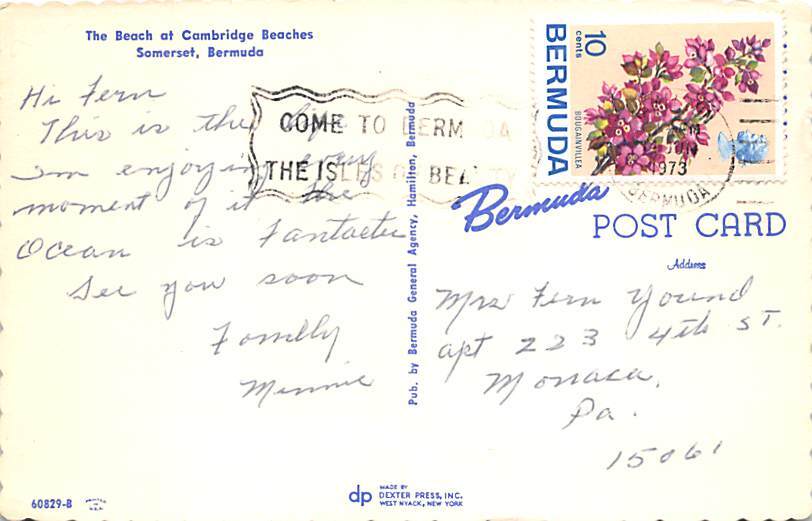 The Beach at Cambridge Beaches
Somerset, Bermuda
Hi Fern
This is the life
I'm enjoying every
moment of it the
Ocean is Fantastic
See you soon
Fondly
Minnie
COME TO BERMUDA
THE ISLES OF BEAUTY
10
cents
BERMUDA
BOUGAINVILLEA
JUN
1973
BERMUDA
Bermuda
POST CARD
Address
Mrs Fern Yound
apt 223 4th ST.
Monaca,
Pa.
15061
Pub. by Bermuda General Agency, Hamilton, Bermuda
60829-B
PRINTED
IN
U.S.A.
dp
MADE BY
DEXTER PRESS, INC.
WEST NYACK, NEW YORK